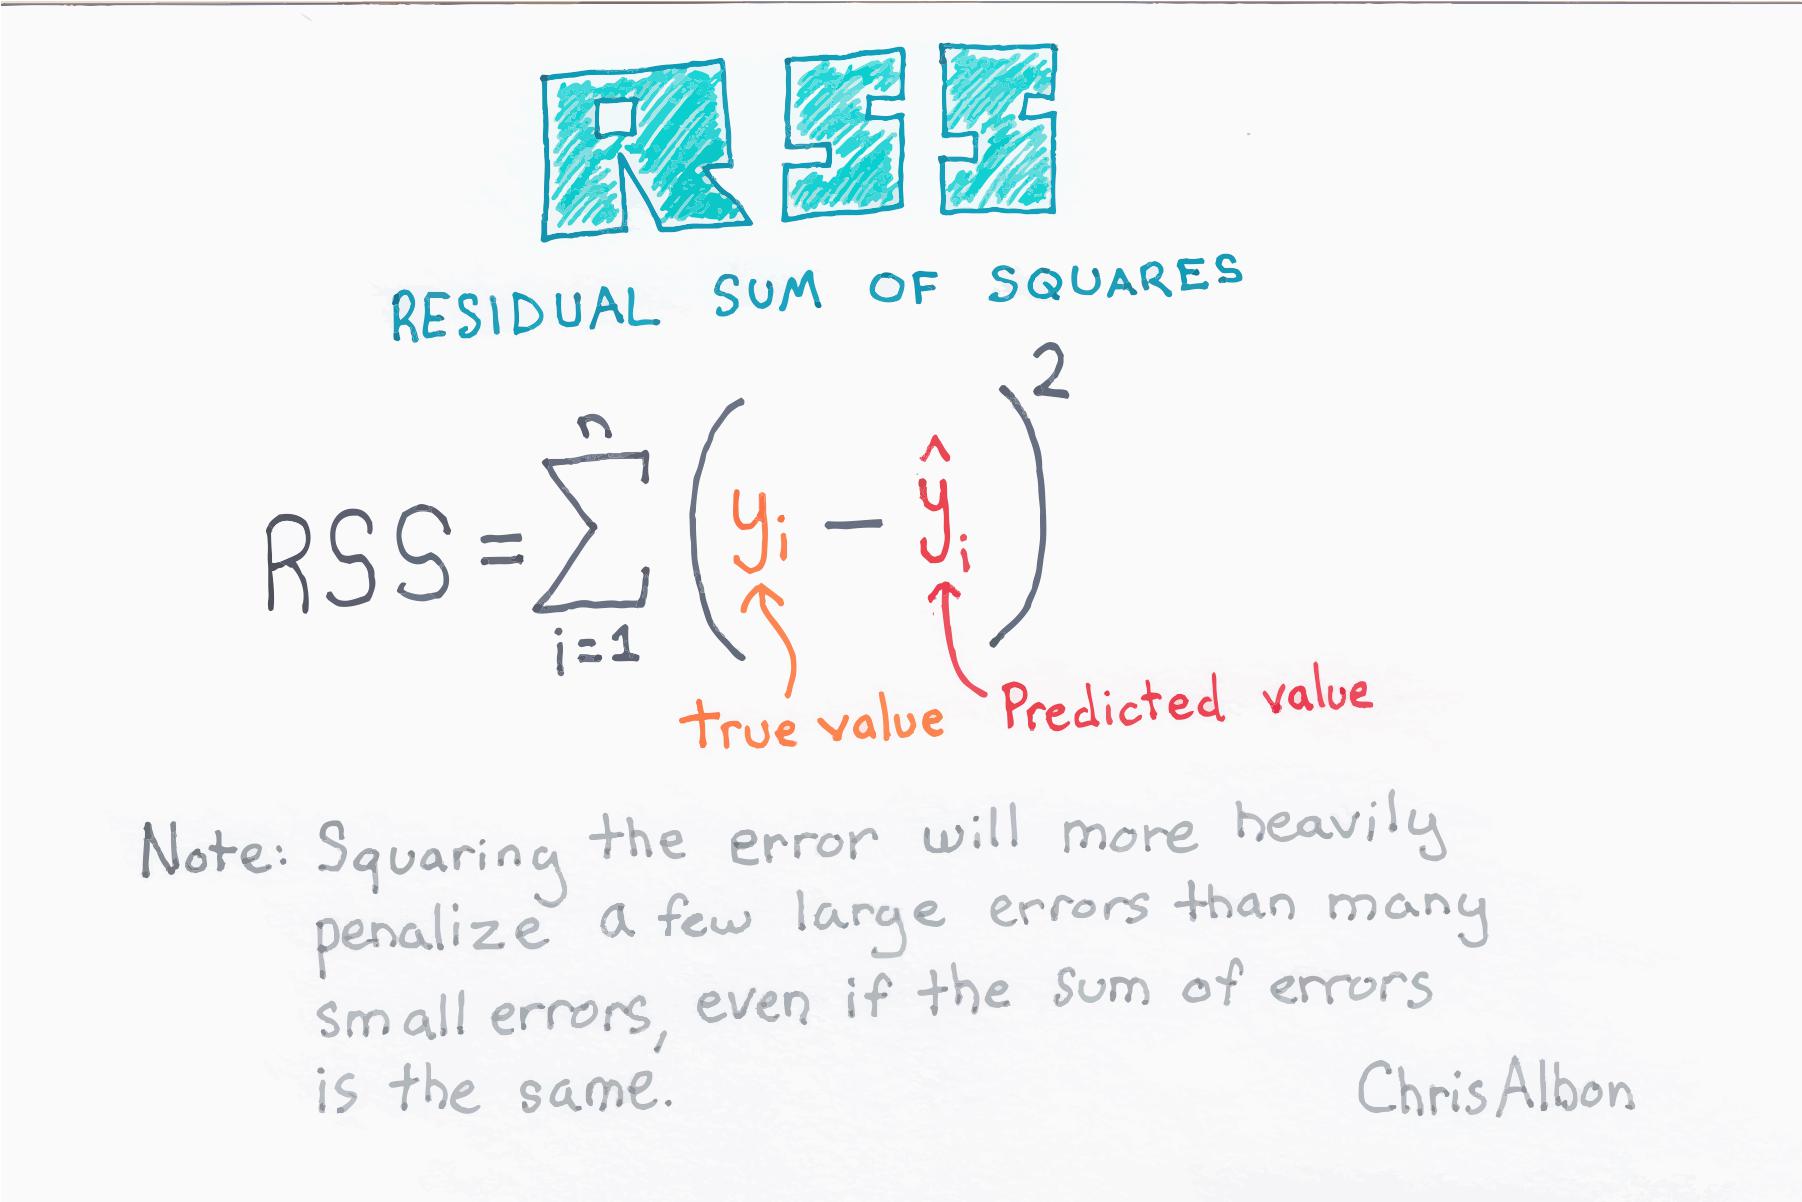 RSS
RESIDUAL SUM OF SQUARES
RSS = n Σ i=1 (yi − ŷi)2
true value Predicted value
Note: Squaring the error will more heavily
penalize a few large errors than many
small errors, even if the sum of errors
is the same.
Chris Albon